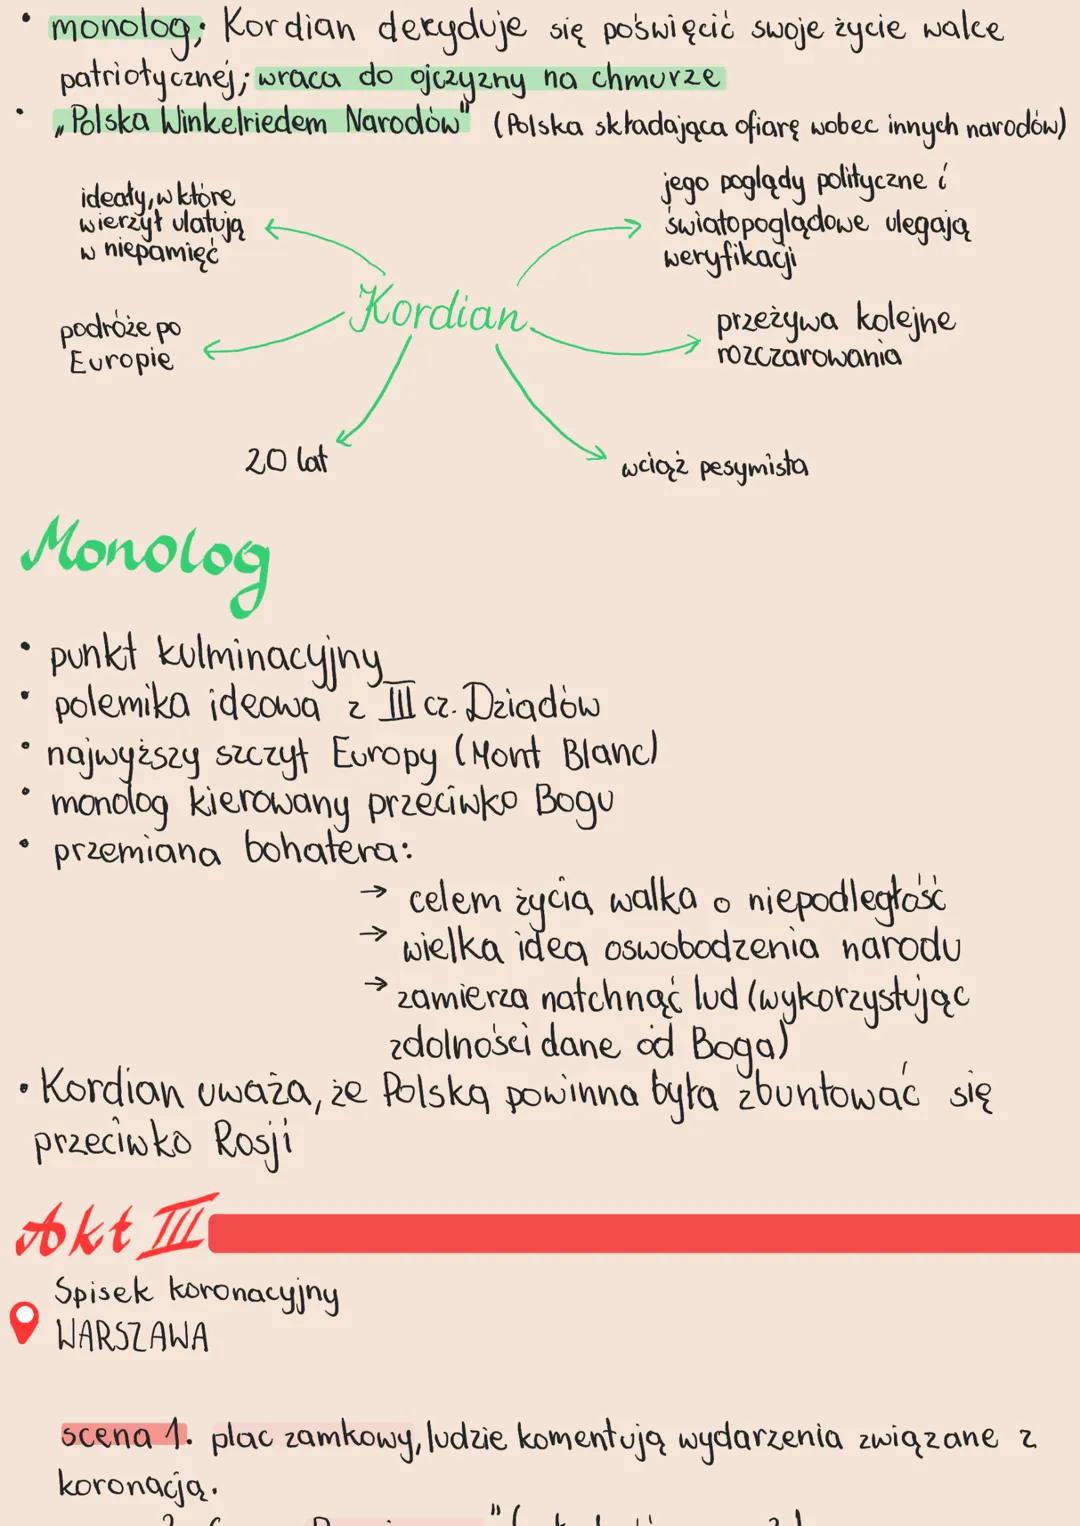 • monolog; Kordian decyduje się poświęcić swoje życie walce
patriotycznej; wraca do ojczyzny na chmurze
• „Polska Winkelriedem Narodów" (Polska składająca ofiarę wobec innych narodów)
ideały, w które
wierzył ulatują
w niepamięć
jego poglądy polityczne i
światopoglądowe ulegają
weryfikacji
Kordian
podróże po
Europie
przeżywa kolejne
rozczarowania
20 lat
wciąż pesymista
Monolog
• punkt kulminacyjny
• polemika ideowa z III cz. Dziadów
• najwyższy szczyt Europy (Mont Blanc)
• monolog kierowany przeciwko Bogu
• przemiana bohatera:
→ celem życia walka o niepodległość
→ wielka idea oswobodzenia narodu
→ zamierza natchnąć lud (wykorzystując
zdolności dane od Boga)
• Kordian uważa, że Polska powinna była zbuntować się
przeciwko Rosji
Akt III
Spisek koronacyjny
WARSZAWA
scena 1. plac zamkowy, ludzie komentują wydarzenia związane z
koronacją.